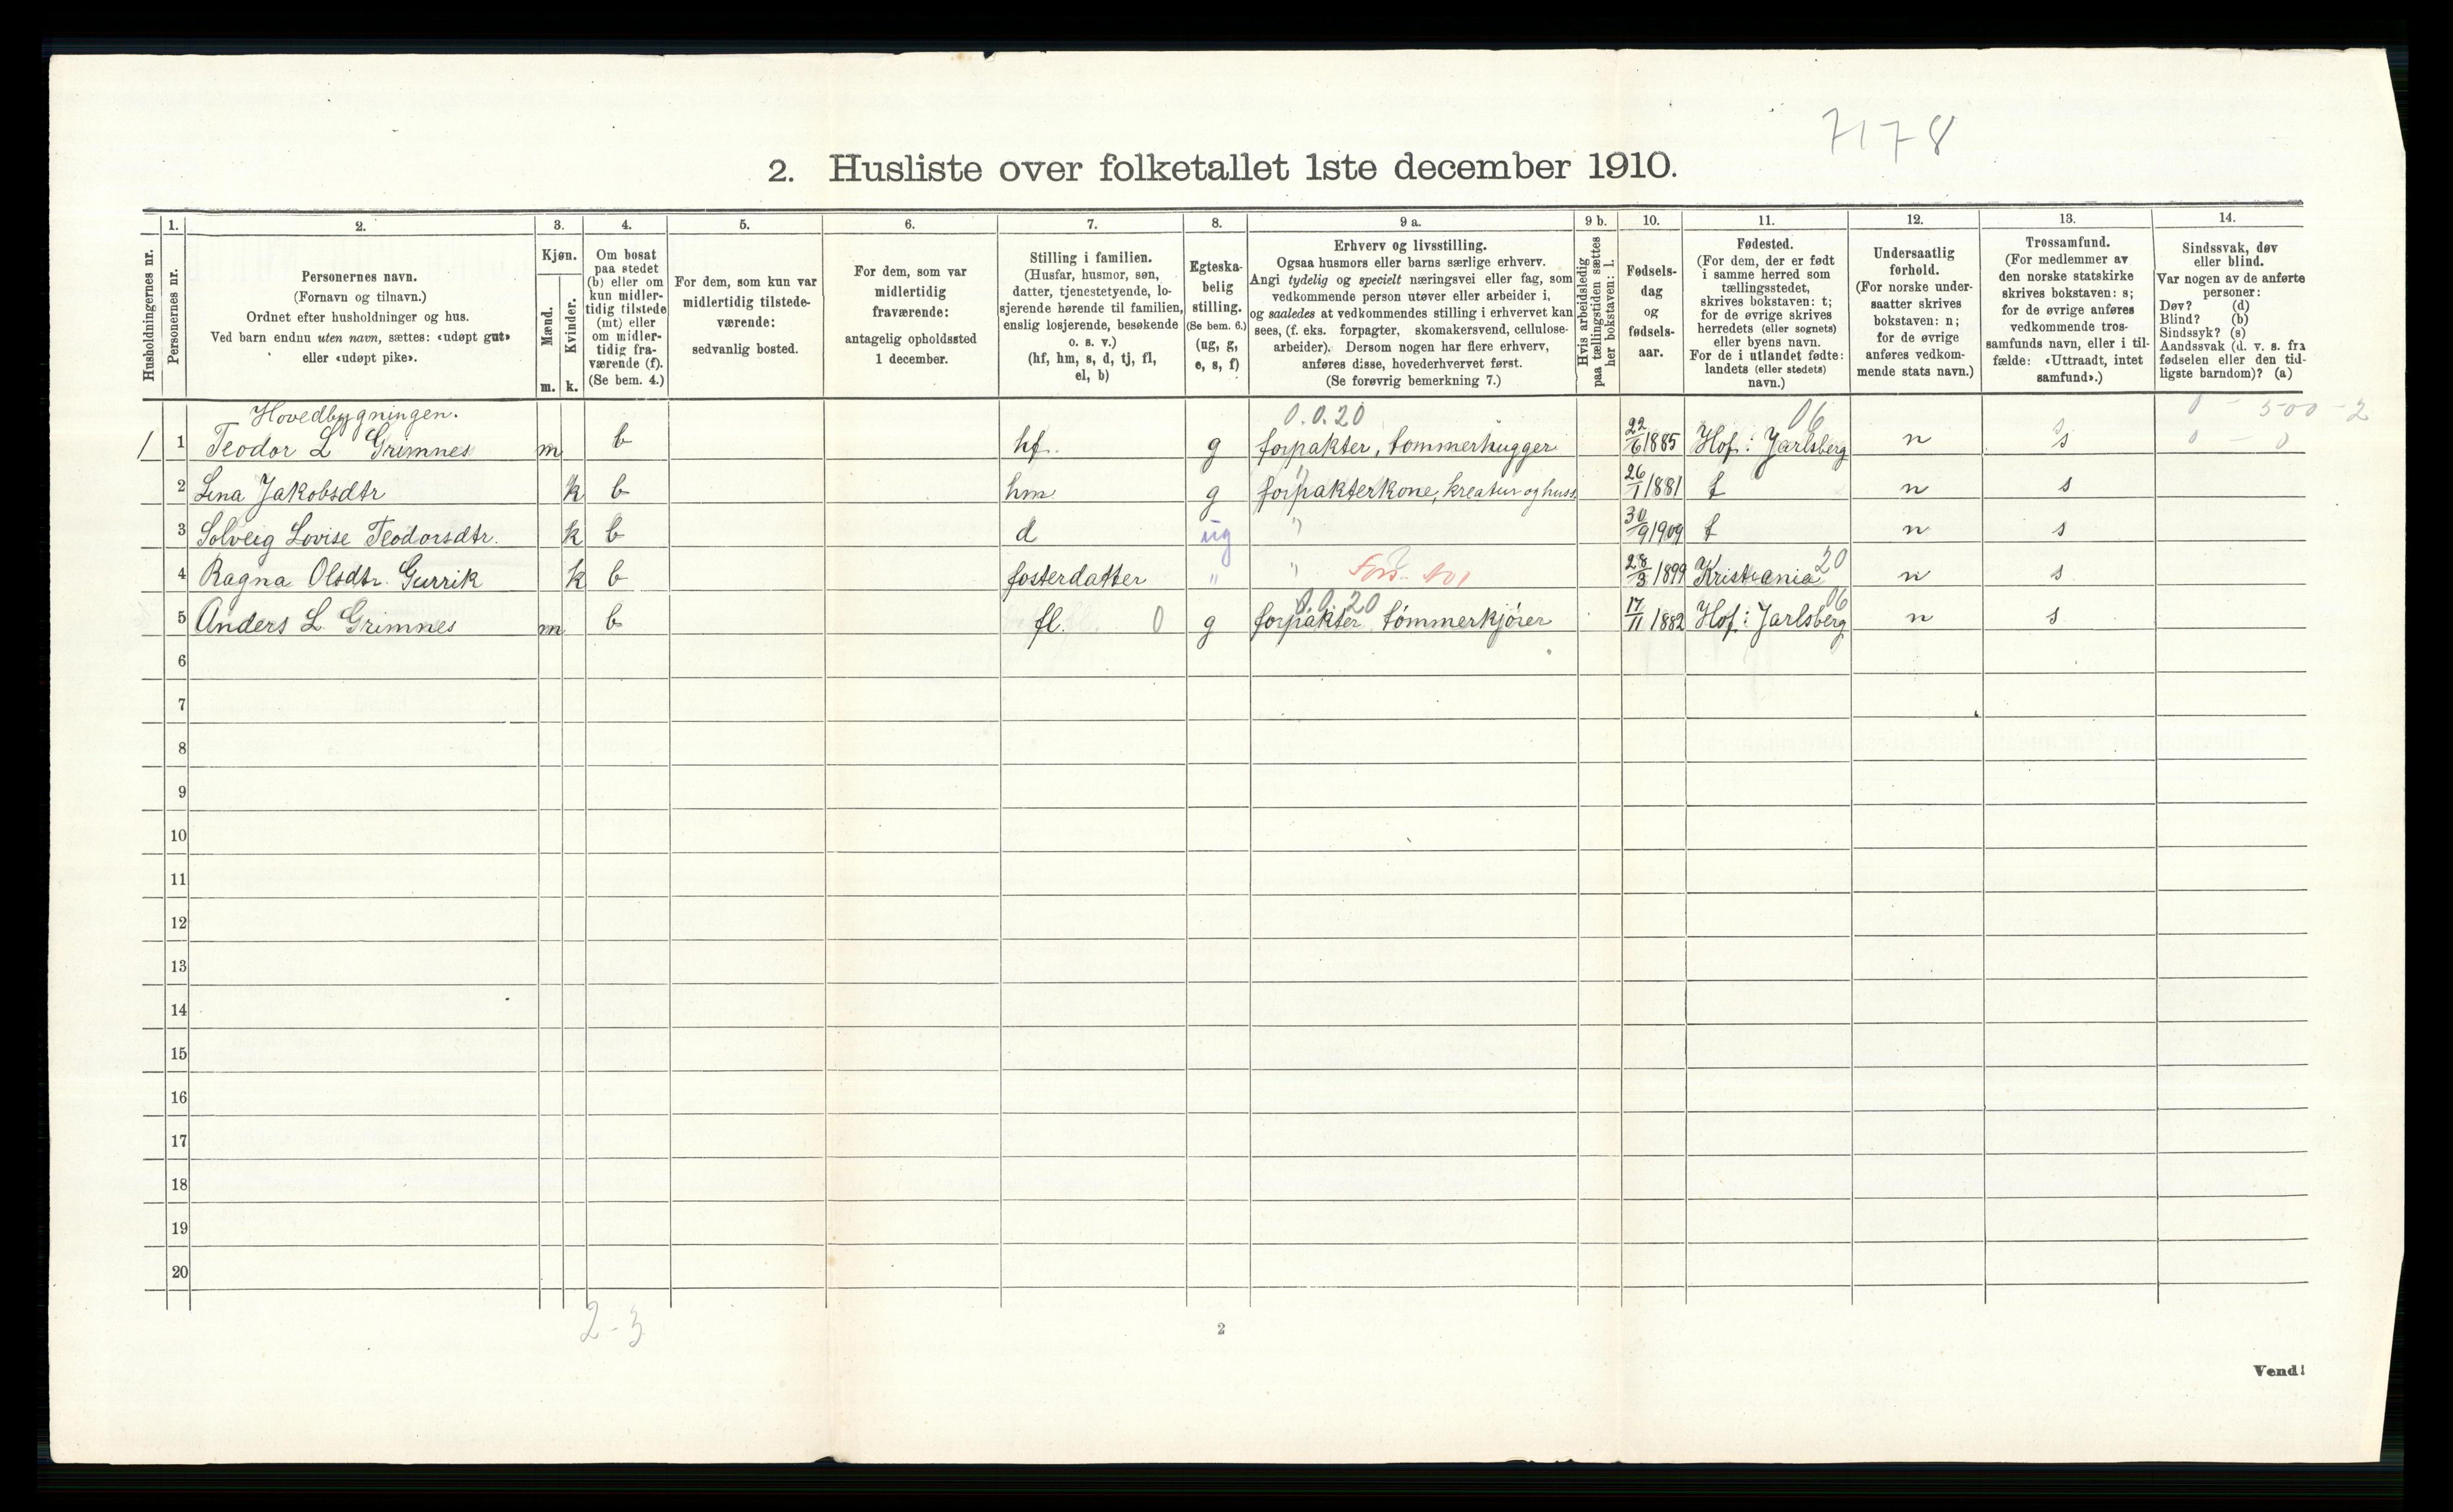 7178
2. Husliste over folketallet 1ste december 1910.
Husholdningernes nr.
1.
Personernes nr.
2.
Personernes navn.
(Fornavn og tilnavn.)
Ordnet efter husholdninger og hus.
Ved barn endnu uten navn, sættes: «udøpt gut»
eller «udøpt pike».
3.
Kjøn.
Mænd.
Kvinder.
m. k.
4.
Om bosat
paa stedet
(b) eller om
kun midler-
tidig tilstede
(mt) eller
om midler-
tidig fra-
værende (f).
(Se bem. 4.)
5.
For dem, som kun var
midlertidig tilstede-
værende:
sedvanlig bosted.
6.
For dem, som var
midlertidig
fraværende:
antagelig opholdssted
1 december.
7.
Stilling i familien.
(Husfar, husmor, søn,
datter, tjenestetyende, lo-
sjerende hørende til familien,
enslig losjerende, besøkende
o. s. v.)
(hf, hm, s, d, tj, fl,
el, b)
8.
Egteska-
belig
stilling.
(Se bem. 6.)
(ug, g,
e, s, f)
9 a.
Erhverv og livsstilling.
Ogsaa husmors eller barns særlige erhverv.
Angi tydelig og specielt næringsvei eller fag, som
vedkommende person utøver eller arbeider i,
og saaledes at vedkommendes stilling i erhvervet kan
sees, (f. eks. forpagter, skomakersvend, cellulose-
arbeider). Dersom nogen har flere erhverv,
anføres disse, hovederhvervet først.
(Se forøvrig bemerkning 7.)
9 b.
Hvis arbeidsledig
paa tællingstiden sættes
her bokstaven: l.
10.
Fødsels-
dag
og
fødsels-
aar.
11.
Fødested.
(For dem, der er født
i samme herred som
tællingsstedet,
skrives bokstaven: t;
for de øvrige skrives
herredets (eller sognets)
eller byens navn.
For de i utlandet fødte:
landets (eller stedets)
navn.)
12.
Undersaatlig
forhold.
(For norske under-
saatter skrives
bokstaven: n;
for de øvrige
anføres vedkom-
mende stats navn.)
13.
Trossamfund.
(For medlemmer av
den norske statskirke
skrives bokstaven: s;
for de øvrige anføres
vedkommende tros-
samfunds navn, eller i til-
fælde: «Uttraadt, intet
samfund».)
14.
Sindssvak, døv
eller blind.
Var nogen av de anførte
personer:
Døv? (d)
Blind? (b)
Sindssyk? (s)
Aandssvak (d. v. s. fra
fødselen eller den tid-
ligste barndom)? (a)
Hovedbygningen. 0.0.20 06 0 - 500 - 2
1 1 Teodor L Grimnes m b hf. g forpakter, tømmerhugger 22/6 1885 Hof: Jarlsberg n s 0 - 0
2 Lina Jakobsdtr k b hm g forpakterkone, kreatur og huss 26/1 1881 t n s
3 Solveig Lovise Teodorsdtr. k b d ug " 30/9 1909 t n s
4 Ragna Olsdtr. Gurrik k b fosterdatter " " 28/3 1899 Kristiania 20 n s
0.0.20 06
5 Anders L Grimnes m b fl. 0 g forpakter tømmerkjører 17/11 1882 Hof: Jarlsberg n s
6
7
8
9
10
11
12
13
14
15
16
17
18
19
20
2-3
2
Vend!